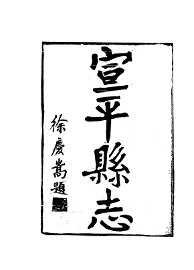 宣平縣志
徐慶嵩題